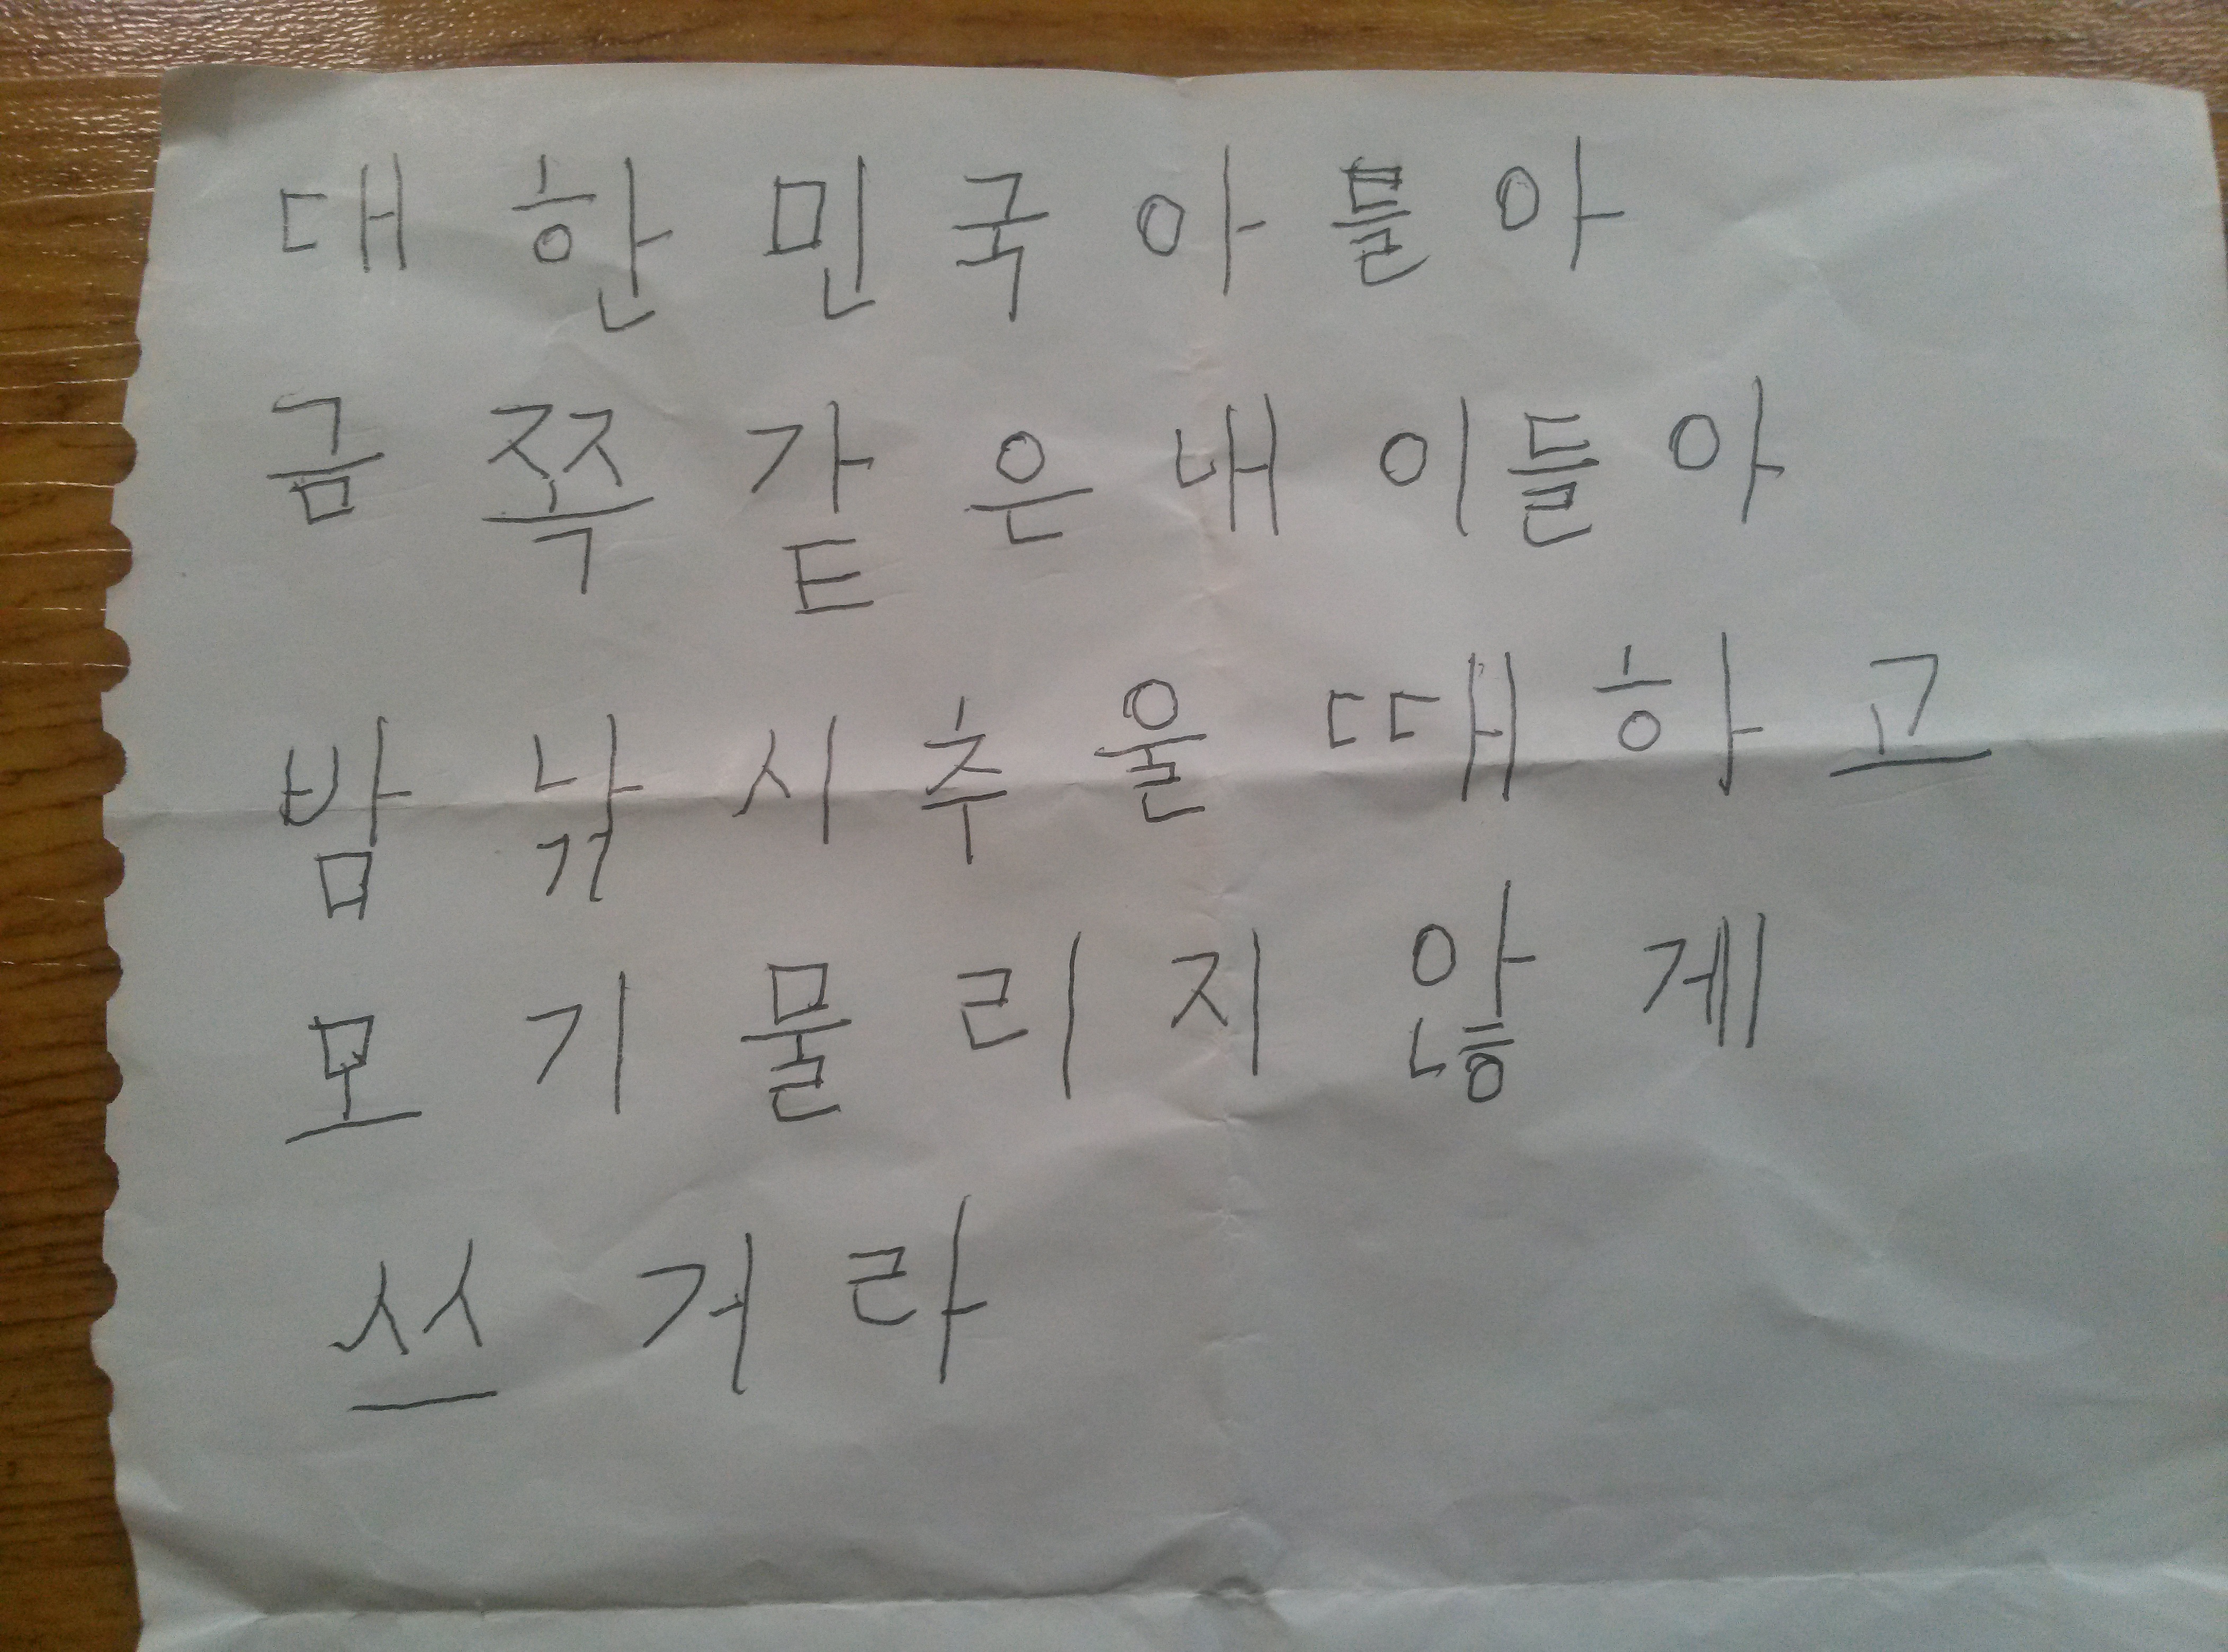 대한민국아들아
금쪽같은내이들아
밤낚시추울때하고
모기물리지않게
쓰거라